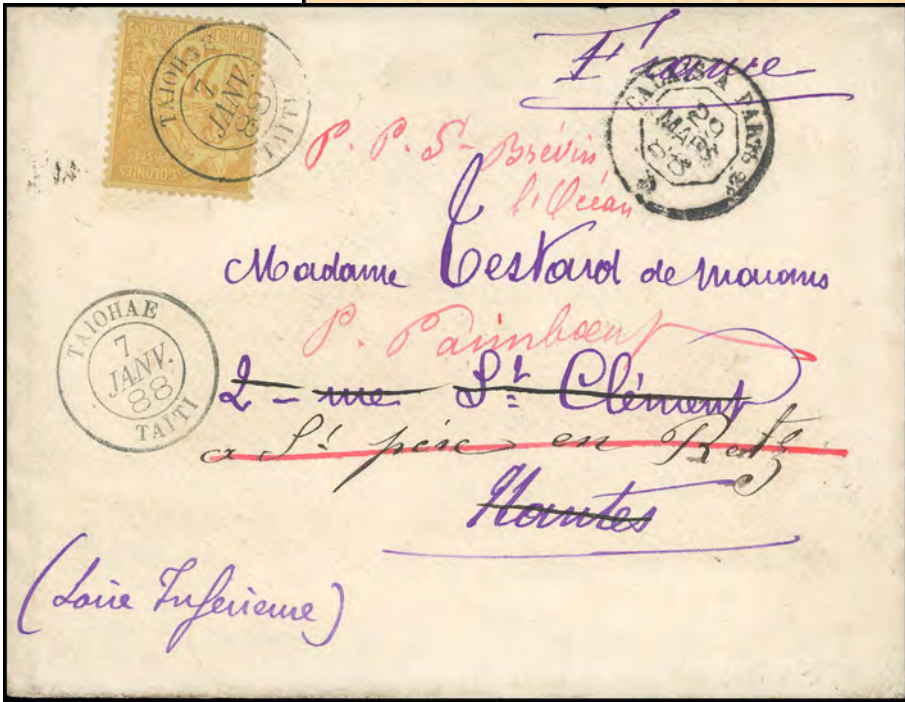 France
RÉPUBLIQUE FRANÇAISE
COLONIES
POSTES
TAIOHAE
7
JANV.
88
TAITI
CALAIS A PARIS
29
MARS
88
P. P. St- Brévin
l'Océan
Madame Testard de Marans
P. Paimboeuf
TAIOHAE
7
JANV.
88
TAITI
2 - rue St Clément
a St père en Retz
Nantes
(Loire Inférieure)